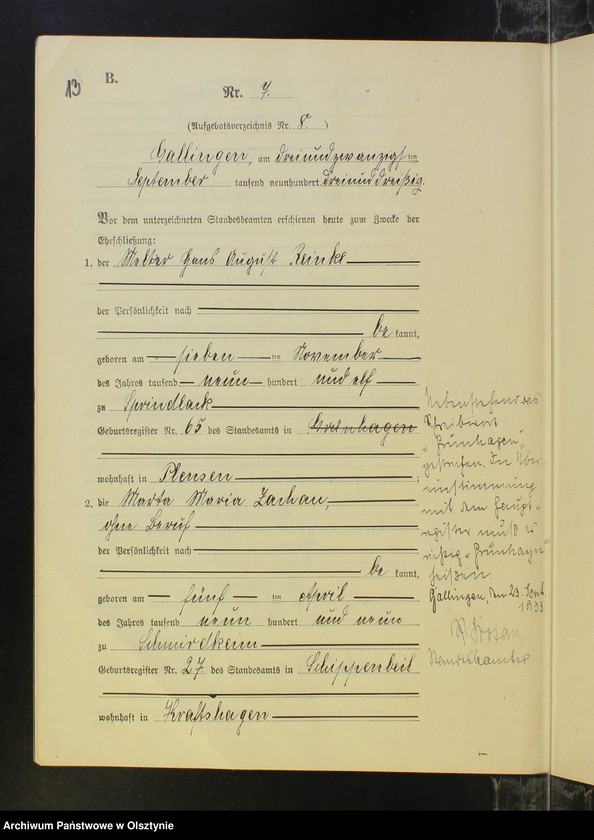 13
B.
Nr. 7.
(Aufgebotsverzeichnis Nr. 8.)
Gallingen, am dreiundzwanzigsten
September tausend neunhundert dreiunddreißig.
Vor dem unterzeichneten Standesbeamten erschienen heute zum Zwecke der
Eheschließung:
1. der Melker Hans August Reinke
der Persönlichkeit nach
bekannt,
geboren am sieben ten November
des Jahres tausend neun hundert und elf
zu Sprindlack
Geburtsregister Nr. 65 des Standesamts in Grünhagen
wohnhaft in Plensen ;
2. die Marta Maria Zachau,
ohne Beruf
der Persönlichkeit nach
bekannt,
geboren am fünf ten April
des Jahres tausend neun hundert und neun
zu Schmirdtkeim
Geburtsregister Nr. 27 des Standesamts in Schippenbeil
wohnhaft in Kraftshagen
Nebenstehendes
"Grünhagen"
gestrichen. In Über-
einstimmung
mit dem Haupt-
register muß es
richtig "Grünhayn"
heißen.
Gallingen, den 23. Sept.
1933
Standesbeamter
Archiwum Państwowe w Olsztynie